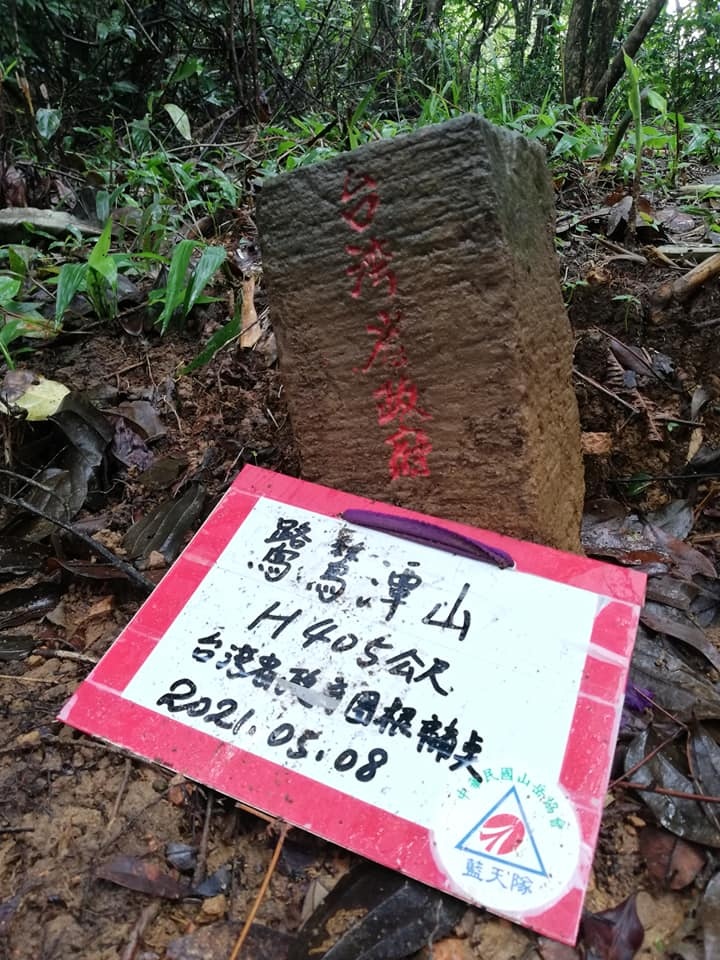 台湾省政府
鷺鷥潭山
H405公尺
台湾省政府図根補点
2021.05.08
中華民國山岳協會
藍天隊